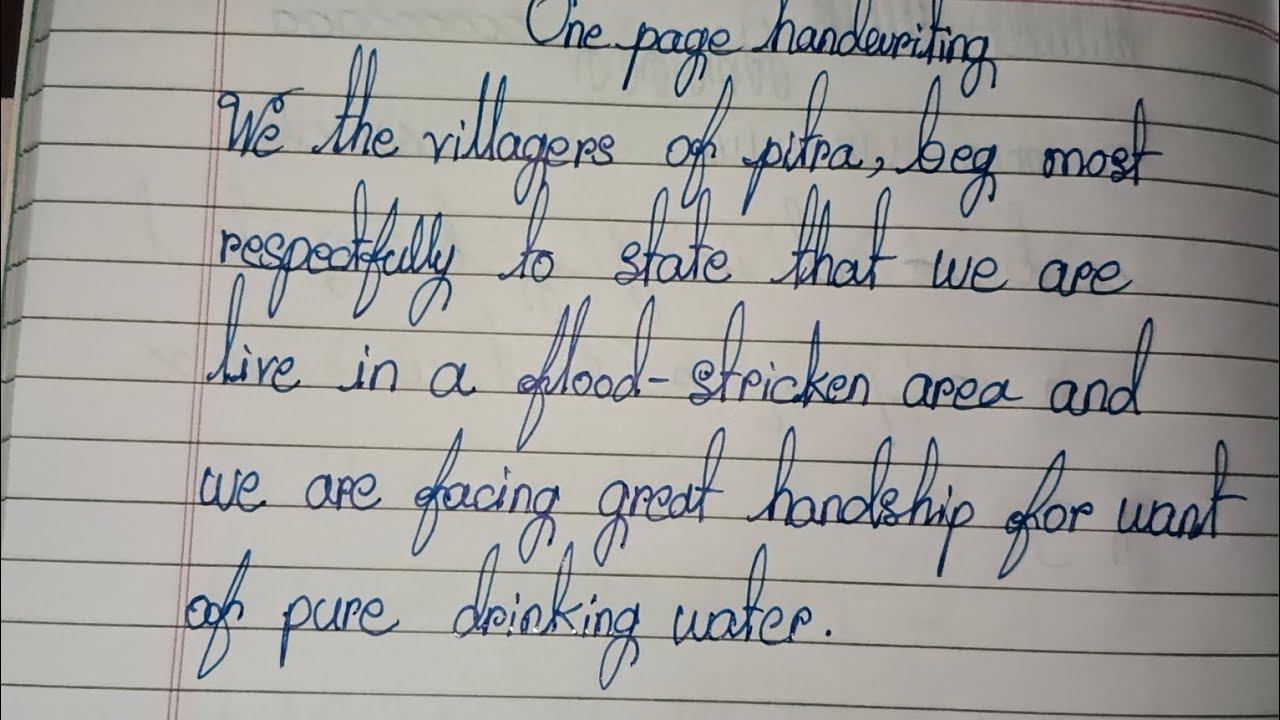 One page handwriting
We the villagers of pitra, beg most
respectfully to state that we are
live in a flood-stricken area and
we are facing great handship for want
of pure drinking water.